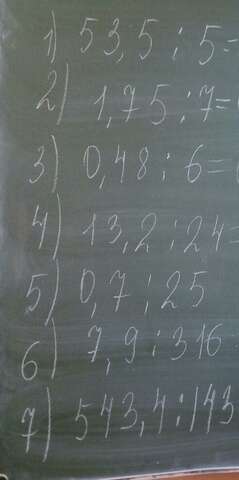 1) 53,5 : 5 =
2) 1,75 : 7 =
3) 0,48 : 6 =
4) 13,2 : 24 =
5) 0,7 : 25
6) 7,9 : 316
7) 543,4 : 143